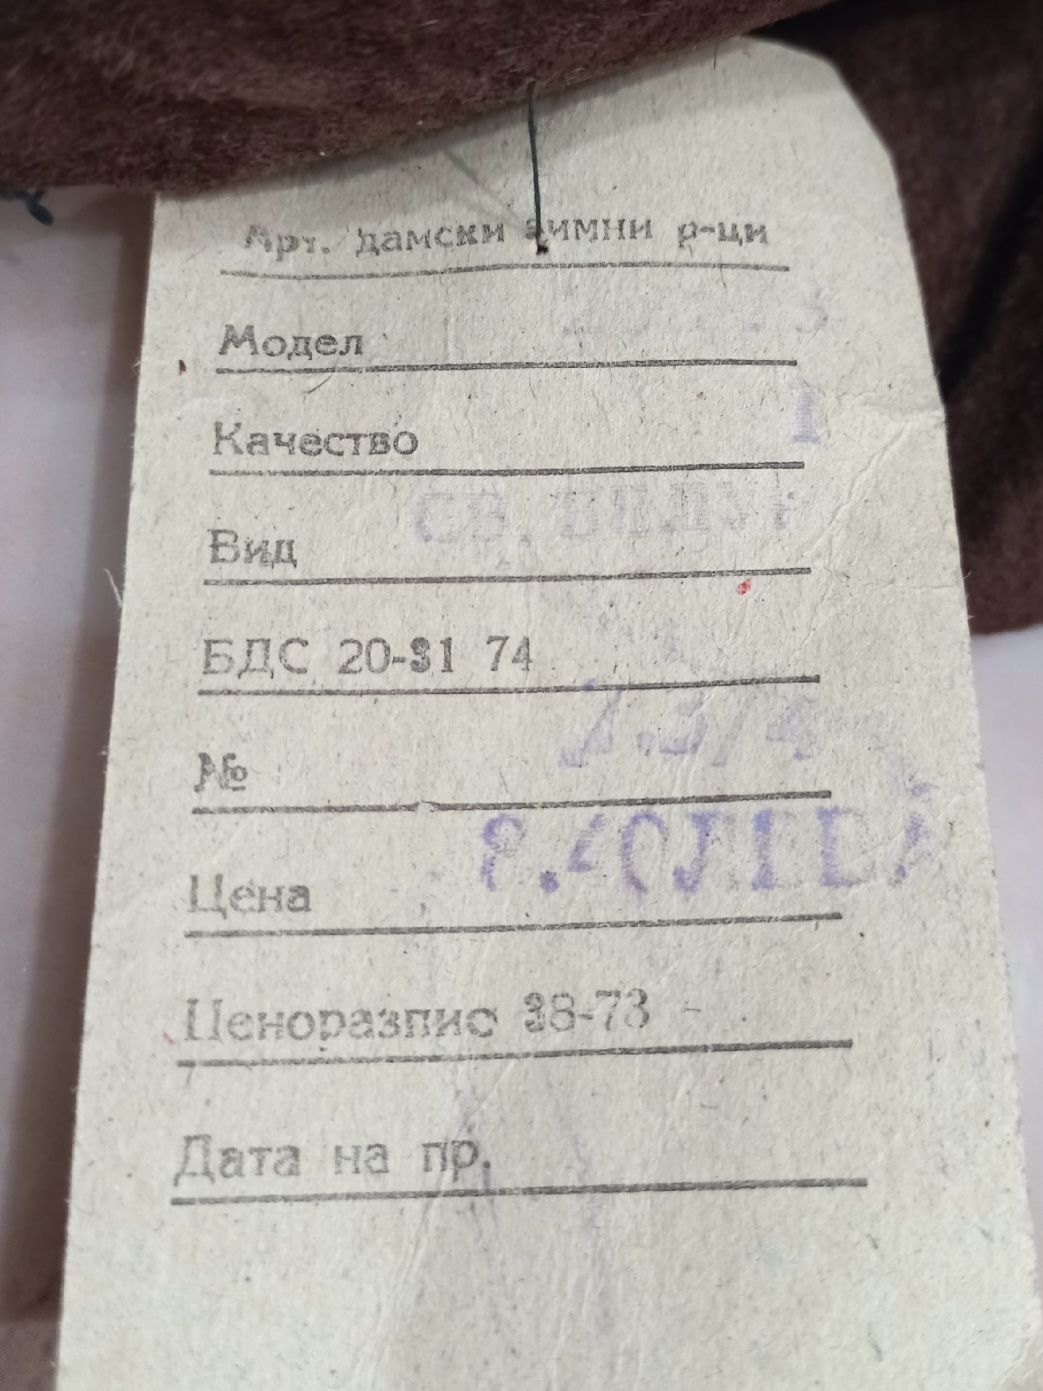 Арт. дамски зимни р-ци
Модел
Качество 1
Вид СВ. ВЕЛУР
БДС 20-31 74
№ 7.3/4
Цена 8.40 ЛЕВА
Ценоразпис 38-73
Дата на пр.